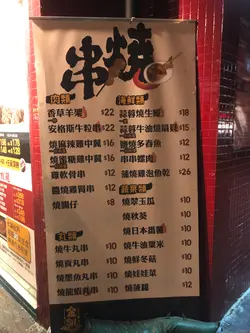 串燒
肉類
香草羊架 $22
安格斯牛粒串 $22
燒麻辣雞中翼 $16
燒蜜糖雞中翼 $16
雞軟骨串 $12
醬燒雞腎串 $12
燒腸仔 $8
丸類
燒牛丸串 $10
燒貢丸串 $10
燒墨魚丸串 $10
燒龍蝦丸串 $10
海鮮類
蒜蓉燒生蠔 $18
蒜蓉牛油燒扇貝 $15
燒多春魚 $12
串串螺肉 $12
燒雞泡魚乾 $26
蔬菜類
燒翠玉瓜 $10
燒秋葵 $10
燒日本番薯 $10
燒牛油粟米 $10
燒鮮冬菇 $10
燒娃娃菜 $10
燒豆腐 $12